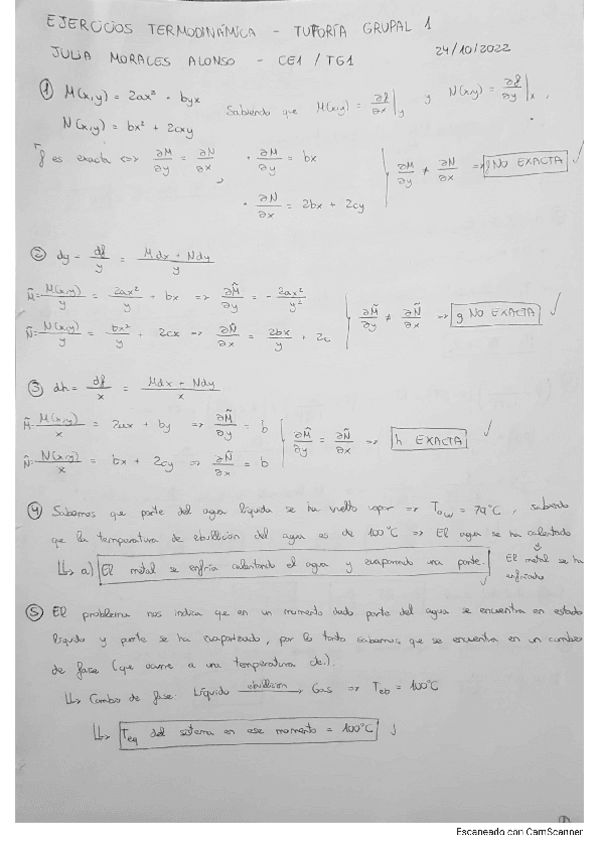 EJERCICIOS TERMODINÁMICA - TUTORÍA GRUPAL 1
JULIA MORALES ALONSO - CE1 / TG1
24/10/2022
① M(x,y) = 2ax² + byx
N(x,y) = bx² + 2cxy
Sabiendo que M(x,y) = ∂f/∂x|y y N(x,y) = ∂f/∂y|x.
f es exacta <=> ∂M/∂y = ∂N/∂x, · ∂M/∂y = bx
· ∂N/∂x = 2bx + 2cy
∂M/∂y ≠ ∂N/∂x => f NO EXACTA ✓
② dg = df/y = Mdx + Ndy/y
M̃ = M(x,y)/y = 2ax²/y + bx => ∂M̃/∂y = - 2ax²/y²
Ñ = N(x,y)/y = bx²/y + 2cx => ∂Ñ/∂x = 2bx/y + 2c
∂M̃/∂y ≠ ∂Ñ/∂x => g NO EXACTA ✓
③ dh = df/x = Mdx + Ndy/x
M̃ = M(x,y)/x = 2ax + by => ∂M̃/∂y = b
Ñ = N(x,y)/x = bx + 2cy => ∂Ñ/∂x = b
∂M̃/∂y = ∂Ñ/∂x => h EXACTA ✓
④ Sabemos que parte del agua líquida se ha vuelto vapor => T₀w = 74°C, sabiendo
que la temperatura de ebullición del agua es de 100°C => El agua se ha calentado
a) El metal se enfría calentando el agua y evaporando una parte. ✓ El metal se ha
enfriado
⑤ El problema nos indica que en un momento dado parte del agua se encuentra en estado
líquido y parte se ha evaporizado, por lo tanto sabemos que se encuentra en un cambio
de fase (que ocurre a una temperatura cte.).
Cambio de fase: Líquido ebullición → Gas => Teb = 100°C
Teq del sistema en ese momento = 100°C ✓
Escaneado con CamScanner